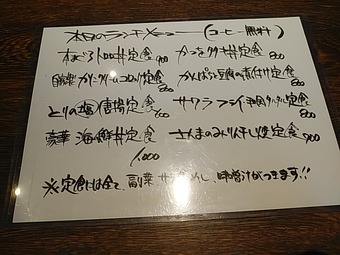 本日のランチメニュー (コーヒー無料)
本まぐろトロ丼定食 900 かつをタタキ丼定食 800
自家製 カニクリームコロッケ定食 800 がんばろう豆腐の煮付け定食 800
とりの塩唐揚定食 800 サワラフライ 定食 800
豪華 海鮮丼定食 さんまのみりん干し焼定食 900
1,000
※定食は全て、副菜、サラダ、めし、味噌汁がつきます!!